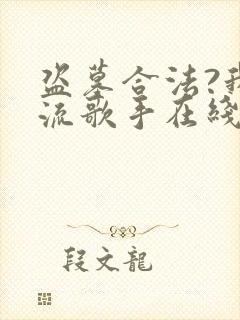 盗墓合法?我
流歌手在线
段文龍